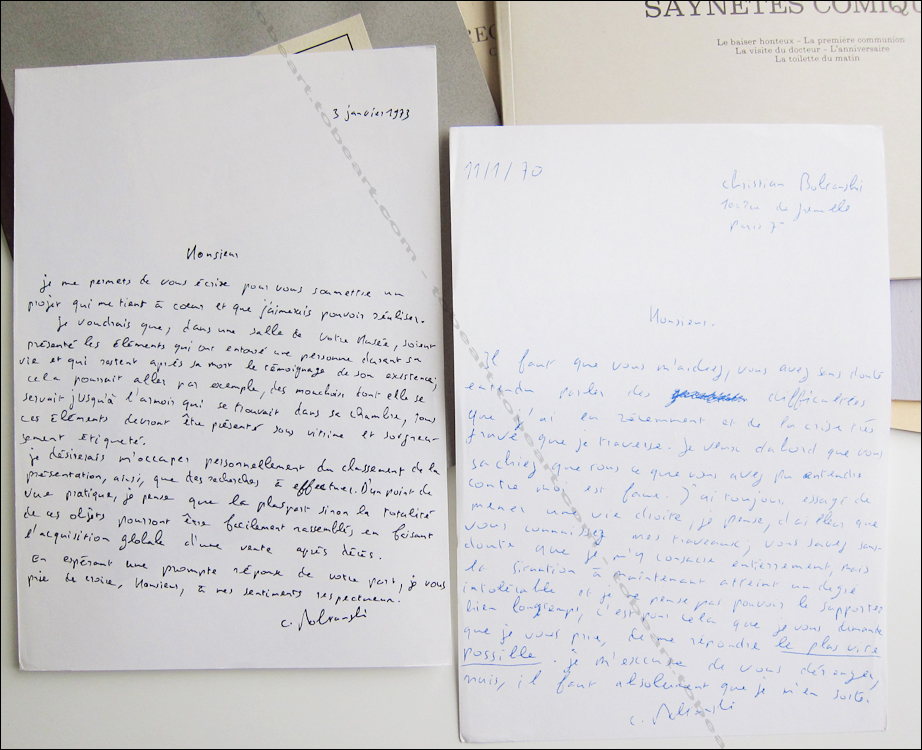 SAYNÈTES COMIQU
Le baiser honteux - La première communion
La visite du docteur - L'anniversaire
La toilette du matin
3 janvier 1973
Monsieur
je me permets de vous écrire pour vous soumettre un
projet qui me tient à cœur et que j'aimerais pouvoir réaliser.
Je voudrais que, dans une salle de votre Musée, soient
présenté les éléments qui ont entouré une personne durant sa
vie et qui restent après sa mort le témoignage de son existence,
cela pourrait aller par exemple, des mouchoirs dont elle se
servait jusqu'à l'armoire qui se trouvait dans sa chambre, tous
ces éléments devront être présentés sous vitrine et soigneu-
sement étiqueté.
je désirerais m'occuper personnellement du classement de la
présentation, ainsi, que des recherches à effectuer. D'un point de
vue pratique, je pense que la plus part sinon la totalité
de ces objets pourront être facilement rassemblés, en faisant
l'acquisition globale d'une vente après décès.
En espérant une prompte réponse de votre part, je vous
prie de croire, Monsieur, à mes sentiments respectueux.
C. Boltanski
11/1/70
Christian Boltanski
rue de Grenelle
Paris 7e
Monsieur.
Il faut que vous m'aidiez, vous avez sans doute
entendu parler des difficultés
que j'ai eu récemment et de la crise très
grave que je traverse. Je veux d'abord que vous
sachiez que tous ce que vous avez pu entendre
contre moi est faux. J'ai toujours essayé de
mener une vie droite, je pense, d'ailleurs que
vous connaissez mes travaux, vous savez sans
doute que je m'y consacre entièrement, mais
la situation à maintenant atteint un degré
intolérable et je ne pense pas pouvoir le supporter
bien longtemps, c'est pour cela que je vous demande
que je vous prie, de me répondre le plus vite
possible. je m'excuse de vous déranger,
mais, il faut absolument que je m'en sorte.
C. Boltanski